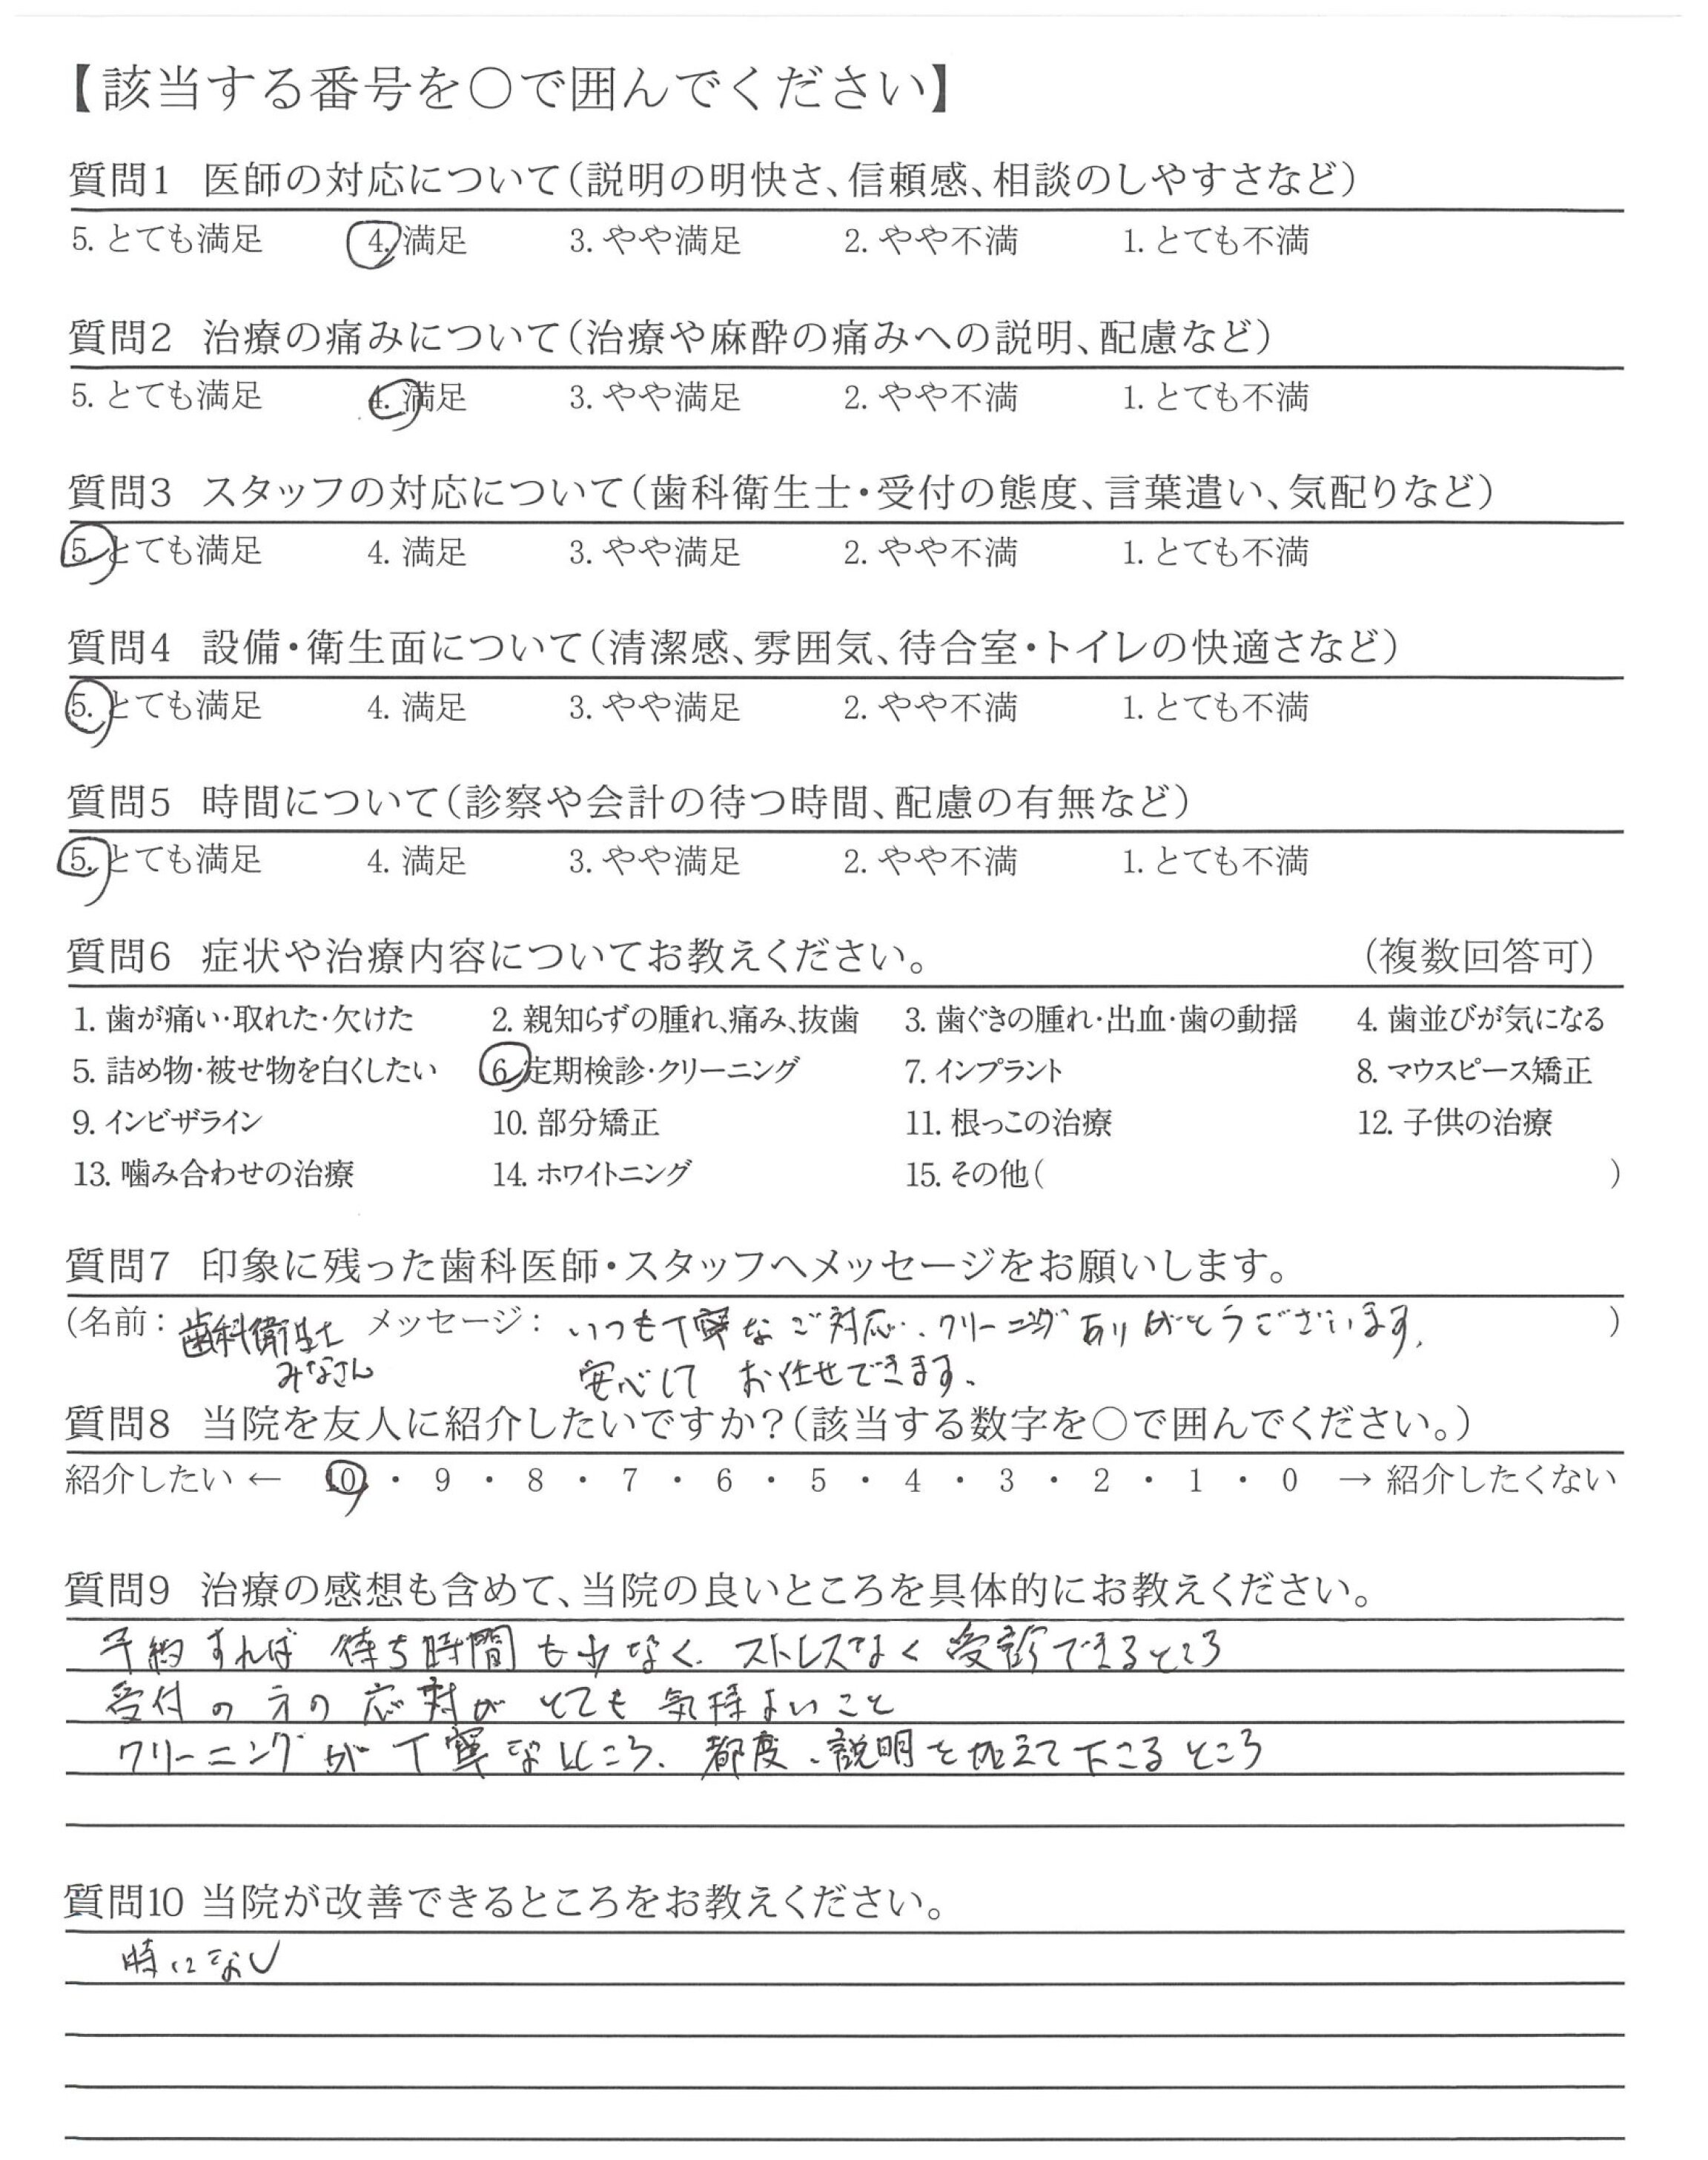 【該当する番号を○で囲んでください】
質問1 医師の対応について(説明の明快さ、信頼感、相談のしやすさなど)
5. とても満足 4. 満足 3. やや満足 2. やや不満 1. とても不満
質問2 治療の痛みについて(治療や麻酔の痛みへの説明、配慮など)
5. とても満足 4. 満足 3. やや満足 2. やや不満 1. とても不満
質問3 スタッフの対応について(歯科衛生士・受付の態度、言葉遣い、気配りなど)
5. とても満足 4. 満足 3. やや満足 2. やや不満 1. とても不満
質問4 設備・衛生面について(清潔感、雰囲気、待合室・トイレの快適さなど)
5. とても満足 4. 満足 3. やや満足 2. やや不満 1. とても不満
質問5 時間について(診察や会計の待つ時間、配慮の有無など)
5. とても満足 4. 満足 3. やや満足 2. やや不満 1. とても不満
質問6 症状や治療内容についてお教えください。 (複数回答可)
1. 歯が痛い・取れた・欠けた 2. 親知らずの腫れ、痛み、抜歯 3. 歯ぐきの腫れ・出血・歯の動揺 4. 歯並びが気になる
5. 詰め物・被せ物を白くしたい 6. 定期検診・クリーニング 7. インプラント 8. マウスピース矯正
9. インビザライン 10. 部分矯正 11. 根っこの治療 12. 子供の治療
13. 噛み合わせの治療 14. ホワイトニング 15. その他( )
質問7 印象に残った歯科医師・スタッフへメッセージをお願いします。
(名前: 歯科衛生士 メッセージ: いつも丁寧なご対応、クリーニングありがとうございます。 )
みなさん 安心して お任せできます。
質問8 当院を友人に紹介したいですか?(該当する数字を○で囲んでください。)
紹介したい ← 10 ・ 9 ・ 8 ・ 7 ・ 6 ・ 5 ・ 4 ・ 3 ・ 2 ・ 1 ・ 0 → 紹介したくない
質問9 治療の感想も含めて、当院の良いところを具体的にお教えください。
予約すれば 待ち時間も少なく、ストレスなく受診できるところ
受付の方の応対がとても気持よいこと
クリーニングが丁寧なところ、都度、説明を加えて下さるところ
質問10 当院が改善できるところをお教えください。
特になし